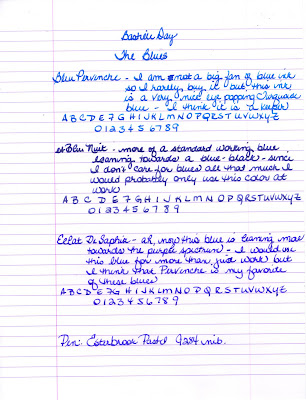 Bastille Day
The Blues
Bleu Pervenche - I am not a big fan of blue ink
so I rarely buy it - but this ink
is a very nice eye popping turquoise
blue - I think it is a keeper
A B C D E F G H I J K L M N O P Q R S T U V W X Y Z
0 1 2 3 4 5 6 7 8 9
Bleu Nuit - more of a standard working blue
leaning towards a blue-black - since
I don't care for blues all that much I
would probably only use this color at
work
A B C D E F G H I J K L M N O P Q R S T U V W X Y Z
0 1 2 3 4 5 6 7 8 9
Eclat De Saphir - ah, now this blue is leaning more
towards the purple spectrum - I would use
this blue for more than just work but
I think that Pervenche is my favorite
of these blues
A B C D E F G H I J K L M N O P Q R S T U V W X Y Z
0 1 2 3 4 5 6 7 8 9
Pen: Esterbrook Pastel 9284 nib.